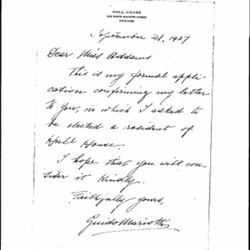 HULL-HOUSE
CHICAGO
September 21, 1927
Dear Miss Addams
This is my formal appli-
cation confirming my letter
to you, in which I asked to
be elected a resident of
Hull House.
I hope that you will con-
sider it kindly.
Faithfully yours,
Guido Mariotti